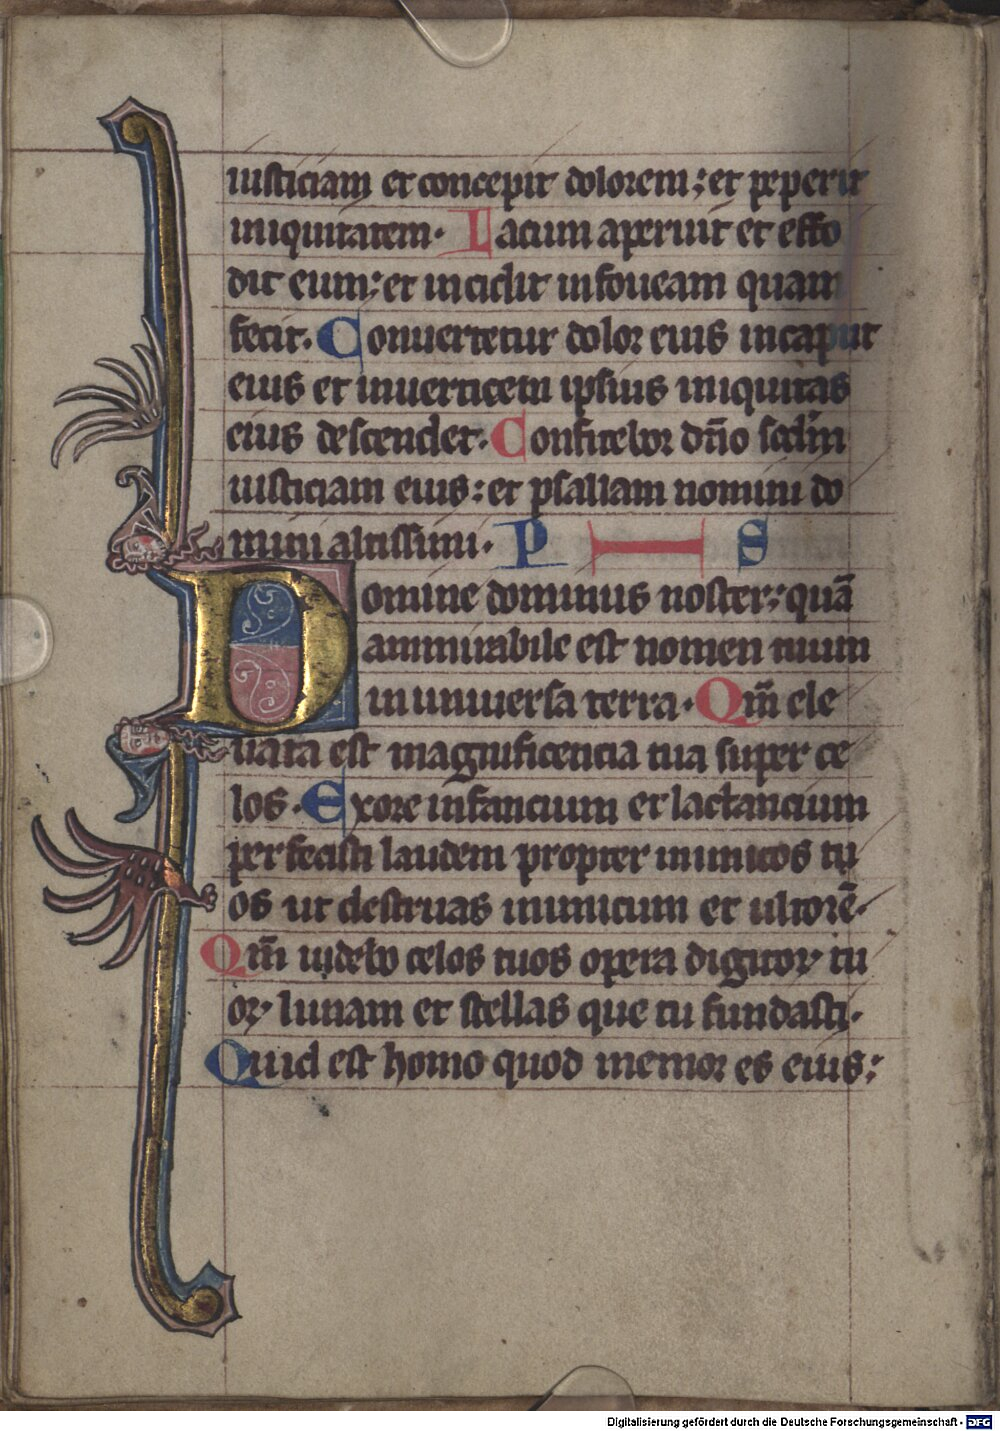 iusticiam et concepit dolorem; et peperit
iniquitatem. Lacum aperuit et effo
dit eum; et incidit in foueam quam
fecit. Conuertetur dolor eius in caput
eius et in uerticem ipsius iniquitas
eius descendet. Confitebor dño scdm̄
iusticiam eius: et psallam nomini do
mini altissimi. P S
Domine dominus noster; quā
ammirabile est nomen tuum
in uniuersa terra. Qm̄ ele
uata est magnificencia tua super ce
los. Ex ore infancium et lactancium
perfecisti laudem propter inimicos tu
os ut destruas inimicum et ultorē.
Qm̄ uidebo celos tuos opera digitoꝝ tu
oꝝ lunam et stellas que tu fundasti.
Quid est homo quod memor es eius:
Digitalisierung gefördert durch die Deutsche Forschungsgemeinschaft - DFG